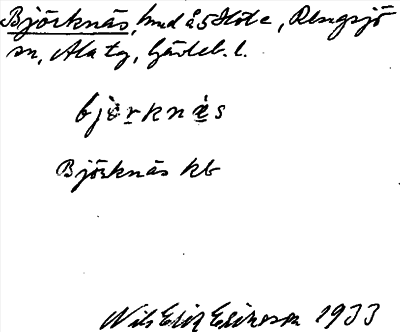 Björknäs, hmd å 5 Höle, Rengsjö
sn, Ala tg, Gävleb. l.
björknäs
Björknäs kb
Nils Eric Ericsson 1933